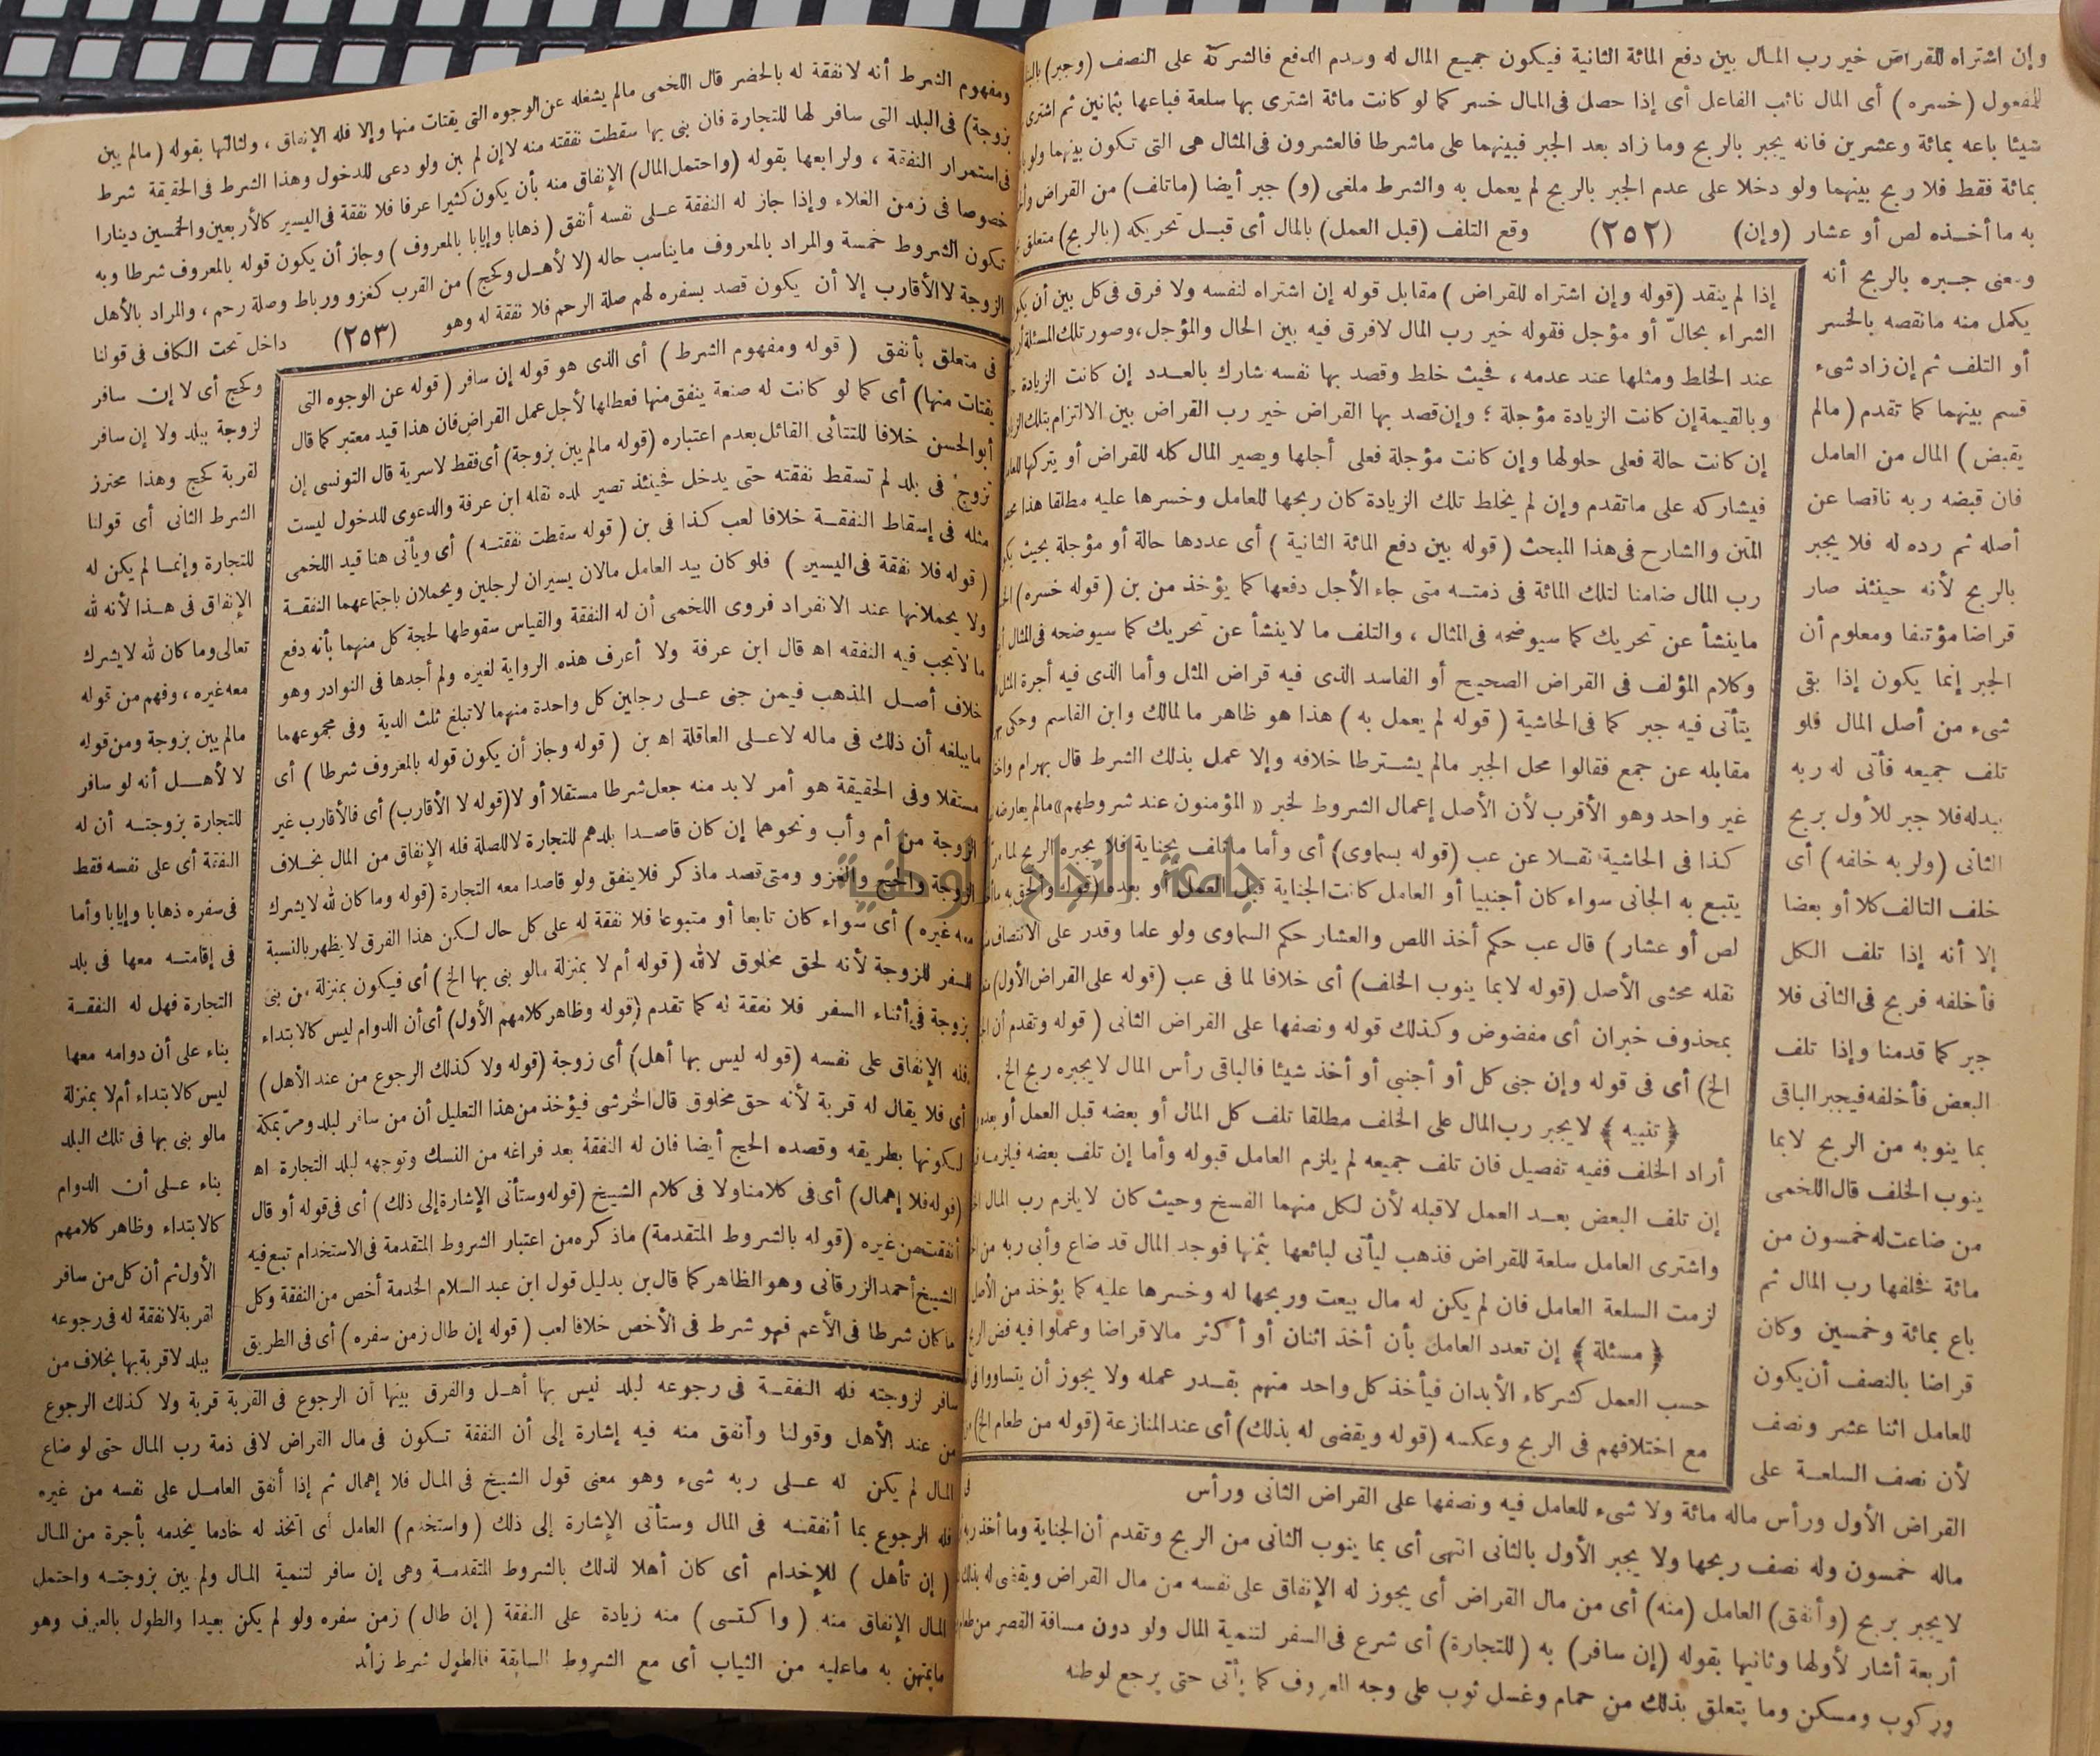 وإن اشتراه للقراض خير رب المال بين دفع المائة الثانية فيكون جميع المال له وعدم الدفع فالشركة على النصف (وجبر)
للمفعول (خسره) أى المال نائب الفاعل أى إذا حصل فى المال خسر كما لو كانت مائة اشترى بها سلعة فباعها بثمانين ثم اشترى
شيئا باعه بمائة وعشرين فانه يجبر بالربح وما زاد بعد الجبر فبينهما على ماشرطا فالعشرون فى المثال هى التى تكون بينهما ولو
بمائة فقط فلا ربح بينهما ولو دخلا على عدم الجبر بالربح لم يعمل به والشرط ملغى (و) جبر أيضا (ماتلف) من القراض
به ما أخذه لص أو عشار (وإن) (٢٥٢) وقع التلف (قبل العمل) بالمال أى قبل تحريكه (بالربح) متعلق
ومعنى جبره بالربح أنه
يكمل منه مانقصه بالخسر
أو التلف ثم إن زاد شىء
قسم بينهما كما تقدم (مالم
يقبض) المال من العامل
فان قبضه ربه ناقصا عن
أصله ثم رده له فلا يجبر
بالربح لأنه حينئذ صار
قراضا مؤتنفا ومعلوم أن
الجبر إنما يكون إذا بقى
شىء من أصل المال فلو
تلف جميعه فأتى له ربه
ببدله فلا جبر للأول بربح
الثانى (ولربه خلفه) أى
خلف التالف كلا أو بعضا
إلا أنه إذا تلف الكل
فأخلفه فربح فى الثانى فلا
جبر كما قدمنا وإذا تلف
البعض فأخلفه فيجبر الباقى
بما ينوبه من الربح لابما
ينوب الخلف قال اللخمى
من ضاعت له خمسون من
مائة فخلفها رب المال ثم
باع بمائة وخمسين وكان
قراضا بالنصف أن يكون
للعامل اثنا عشر ونصف
لأن نصف السلعة على
إذا لم ينقد (قوله وإن اشتراه للقراض) مقابل قوله إن اشتراه لنفسه ولا فرق فى كل بين أن
الشراء بحال أو مؤجل فقوله خير رب المال لافرق فيه بين الحال والمؤجل، وصور تلك المسئلة
عند الخلط ومثلها عند عدمه، فحيث خلط وقصد بها نفسه شارك بالعدد إن كانت الزيادة
وبالقيمة إن كانت الزيادة مؤجلة؛ وإن قصد بها القراض خير رب القراض بين الالتزام بتلك
إن كانت حالة فعلى حلولها وإن كانت مؤجلة فعلى أجلها ويصير المال كله للقراض أو يتركها
فيشاركه على ماتقدم وإن لم يخلط تلك الزيادة كان ربحها للعامل وخسرها عليه مطلقا هذا
المتن والشارح فى هذا المبحث (قوله بين دفع المائة الثانية) أى عددها حالة أو مؤجلة بحيث
رب المال ضامنا لتلك المائة فى ذمته متى جاء الأجل دفعها كما يؤخذ من بن (قوله خسره)
ماينشأ عن تحريك كما سيوضحه فى المثال، والتلف ما لاينشأ عن تحريك كما سيوضحه فى المثال
وكلام المؤلف فى القراض الصحيح أو الفاسد الذى فيه قراض المثل وأما الذى فيه أجرة المثل
يتأتى فيه جبر كما فى الحاشية (قوله لم يعمل به) هذا هو ظاهر ما لمالك وابن القاسم وحكى
مقابله عن جمع فقالوا محل الجبر مالم يشترطا خلافه وإلا عمل بذلك الشرط قال بهرام
غير واحد وهو الأقرب لأن الأصل إعمال الشروط لخبر «المؤمنون عند شروطهم» مالم يعارضه
كذا فى الحاشية نقلا عن عب (قوله بسماوى) أى وأما ماتلف بجناية فلا يجبره الربح لما
يتبع به الجانى سواء كان أجنبيا أو العامل كانت الجناية قبل العمل أو بعده (قوله والحق به
لص أو عشار) قال عب حكم أخذ اللص والعشار حكم السماوى ولو علما وقدر على الانتصاف
نقله محشى الأصل (قوله لابما ينوب الخلف) أى خلافا لما فى عب (قوله على القراض الأول)
بمحذوف خبران أى مفضوض وكذلك قوله ونصفها على القراض الثانى (قوله وتقدم أن
الخ) أى فى قوله وإن جنى كل أو أجنبي أو أخذ شيئا فالباقى رأس المال لايجبره ربح الخ.
﴿تنبيه﴾ لايجبر رب المال على الخلف مطلقا تلف كل المال أو بعضه قبل العمل أو
أراد الخلف ففيه تفصيل فان تلف جميعه لم يلزم العامل قبوله وأما إن تلف بعضه فيلزمه
إن تلف البعض بعد العمل لاقبله لأن لكل منهما الفسخ وحيث كان لايلزم رب المال
واشترى العامل سلعة للقراض فذهب ليأتى لبائعها بثمنها فوجد المال قد ضاع وأبى ربه من
لزمت السلعة العامل فان لم يكن له مال بيعت وربحها له وخسرها عليه كما يؤخذ من الأصل
﴿مسئلة﴾ إن تعدد العامل بأن أخذ اثنان أو أكثر مالا قراضا وعملوا فيه فض
حسب العمل كشركاء الأبدان فيأخذ كل واحد منهم بقدر عمله ولا يجوز أن يتساووا فى
مع اختلافهم فى الربح وعكسه (قوله ويقضى له بذلك) أى عند المنازعة (قوله من طعام الخ)
القراض الأول ورأس ماله مائة ولا شىء للعامل فيه ونصفها على القراض الثانى ورأس
ماله خمسون وله نصف ربحها ولا يجبر الأول بالثانى انتهى أى بما ينوب الثانى من الربح وتقدم أن الجناية وما أخذ
لايجبر بربح (وأنفق) العامل (منه) أى من مال القراض أى يجوز له الإنفاق على نفسه من مال القراض ويقضى له بذلك
أربعة أشار لأولها وثانيها بقوله (إن سافر) به (للتجارة) أى شرع فى السفر لتنمية المال ولو دون مسافة القصر من
وركوب ومسكن وما يتعلق بذلك من حمام وغسل ثوب على وجه المعروف كما يأتى حتى يرجع لوطنه
ومفهوم الشرط أنه لانفقة له بالحضر قال اللخمى مالم يشغله عن الوجوه التى يقتات منها وإلا فله الإنفاق، ولثالثها بقوله (مالم يبن
بزوجة) فى البلد التى سافر لها للتجارة فان بنى بها سقطت نفقته منه لاإن لم بين ولو دعى للدخول وهذا الشرط فى الحقيقة شرط
فى استمرار النفقة، ولرابعها بقوله (واحتمل المال) الإنفاق منه بأن يكون كثيرا عرفا فلا نفقة فى اليسير كالأربعين والخمسين دينارا
خصوصا فى زمن الغلاء وإذا جاز له النفقة على نفسه أنفق (ذهابا وإيابا بالمعروف) وجاز أن يكون قوله بالمعروف شرطا وبه
تكون الشروط خمسة والمراد بالمعروف مايناسب حاله (لا لأهل وكحج) من القرب كغزو ورباط وصلة رحم، والمراد بالأهل
الزوجة لاالأقارب إلا أن يكون قصد بسفره لهم صلة الرحم فلا نفقة له وهو (٢٥٣) داخل تحت الكاف فى قولنا
وكحج أى لا إن سافر
لزوجة ببلد ولا إن سافر
لقربة كحج وهذا محترز
الشرط الثانى أى قولنا
للتجارة وإنما لم يكن له
الإنفاق فى هذا لأنه لله
تعالى وما كان لله لايشرك
معه غيره، وفهم من قوله
مالم يبن بزوجة ومن قوله
لا لأهل أنه لو سافر
للتجارة بزوجته أن له
النفقة أى على نفسه فقط
فى سفره ذهابا وإيابا وأما
فى إقامته معها فى بلد
التجارة فهل له النفقة
بناء على أن دوامه معها
ليس كالابتداء أم لا بمنزلة
مالو بنى بها فى تلك البلد
بناء على أن الدوام
كالابتداء وظاهر كلامهم
الأول ثم أن كل من سافر
لقربة لانفقة له فى رجوعه
ببلد لاقربة بها بخلاف من
فى متعلق بأنفق (قوله ومفهوم الشرط) أى الذى هو قوله إن سافر (قوله عن الوجوه التى
يقتات منها) أى كما لو كانت له صنعة ينفق منها فعطلها لأجل عمل القراض فان هذا قيد معتبر كما قال
أبو الحسن خلافا للتتائى القائل بعدم اعتباره (قوله مالم يبن بزوجة) أى فقط لاسرية قال التونسى إن
تزوج فى بلد لم تسقط نفقته حتى يدخل فحينئذ تصير بلده نقله ابن عرفة والدعوى للدخول ليست
مثله فى إسقاط النفقة خلافا لعب كذا فى بن (قوله سقطت نفقته) أى ويأتى هنا قيد اللخمى
(قوله فلا نفقة فى اليسير) فلو كان بيد العامل مالان يسيران لرجلين ويحملان باجتماعهما النفقة
ولا يحملانها عند الانفراد فروى اللخمى أن له النفقة والقياس سقوطها لحجة كل منهما بأنه دفع
مالاتجب فيه النفقه اه قال ابن عرفة ولا أعرف هذه الرواية لغيره ولم أجدها فى النوادر وهو
خلاف أصل المذهب فيمن جنى على رجلين كل واحدة منهما لاتبلغ ثلث الدية وفى مجموعهما
مايبلغه أن ذلك فى ماله لاعلى العاقلة اه بن (قوله وجاز أن يكون قوله بالمعروف شرطا) أى
مستقلا وفى الحقيقة هو أمر لابد منه جعل شرطا مستقلا أو لا (قوله لا الأقارب) أى فالأقارب غير
الزوجة من أم وأب ونحوهما إن كان قاصدا بلدهم للتجارة لاللصلة فله الإنفاق من المال بخلاف
الزوجة والحج والغزو ومتى قصد ماذكر فلاينفق ولو قاصدا معه التجارة (قوله وما كان لله لايشرك
معه غيره) أى سواء كان تابعا أو متبوعا فلا نفقة له على كل حال لكن هذا الفرق لايظهر بالنسبة
للسفر للزوجة لأنه لحق مخلوق لالله (قوله أم لا بمنزلة مالو بنى بها الخ) أى فيكون بمنزلة من بنى
بزوجة فى أثناء السفر فلا نفقة له كما تقدم (قوله وظاهر كلامهم الأول) أى أن الدوام ليس كالابتداء
فله الإنفاق على نفسه (قوله ليس بها أهل) أى زوجة (قوله ولا كذلك الرجوع من عند الأهل)
أى فلا يقال له قربة لأنه حق مخلوق قال الخرشى فيؤخذ من هذا التعليل أن من سافر لبلد ومر بمكة
لكونها بطريقه وقصده الحج أيضا فان له النفقة بعد فراغه من النسك وتوجهه لبلد التجارة اه
(قوله فلا إهمال) أى فى كلامنا ولا فى كلام الشيخ (قوله وستأتى الإشارة إلى ذلك) أى فى قوله أو قال
أنفقت من غيره (قوله بالشروط المتقدمة) ماذكره من اعتبار الشروط المتقدمة فى الاستخدام تبع فيه
الشيخ أحمد الزرقانى وهو الظاهر كما قال بن بدليل قول ابن عبد السلام الخدمة أخص من النفقة وكل
ماكان شرطا فى الأعم فهو شرط فى الأخص خلافا لعب (قوله إن طال زمن سفره) أى فى الطريق
سافر لزوجته فله النفقة فى رجوعه لبلد ليس بها أهل والفرق بينها أن الرجوع فى القربة قربة ولا كذلك الرجوع
من عند الأهل وقولنا وأنفق منه فيه إشارة إلى أن النفقة تكون فى مال القراض لافى ذمة رب المال حتى لو ضاع
المال لم يكن له على ربه شىء وهو معنى قول الشيخ فى المال فلا إهمال ثم إذا أنفق العامل على نفسه من غيره
فله الرجوع بما أنفقه فى المال وستأتى الإشارة إلى ذلك (واستخدم) العامل أى اتخذ له خادما يخدمه بأجرة من المال
(إن تأهل) للإخدام أى كان أهلا لذلك بالشروط المتقدمة وهى إن سافر لتنمية المال ولم يبن بزوجته واحتمل
المال الإنفاق منه (واكتسى) منه زيادة على النفقة (إن طال) زمن سفره ولو لم يكن بعيدا والطول بالعرف وهو
مايمتهن به ماعليه من الثياب أى مع الشروط السابقة فالطول شرط زائد
جامعة النجاح الوطنية